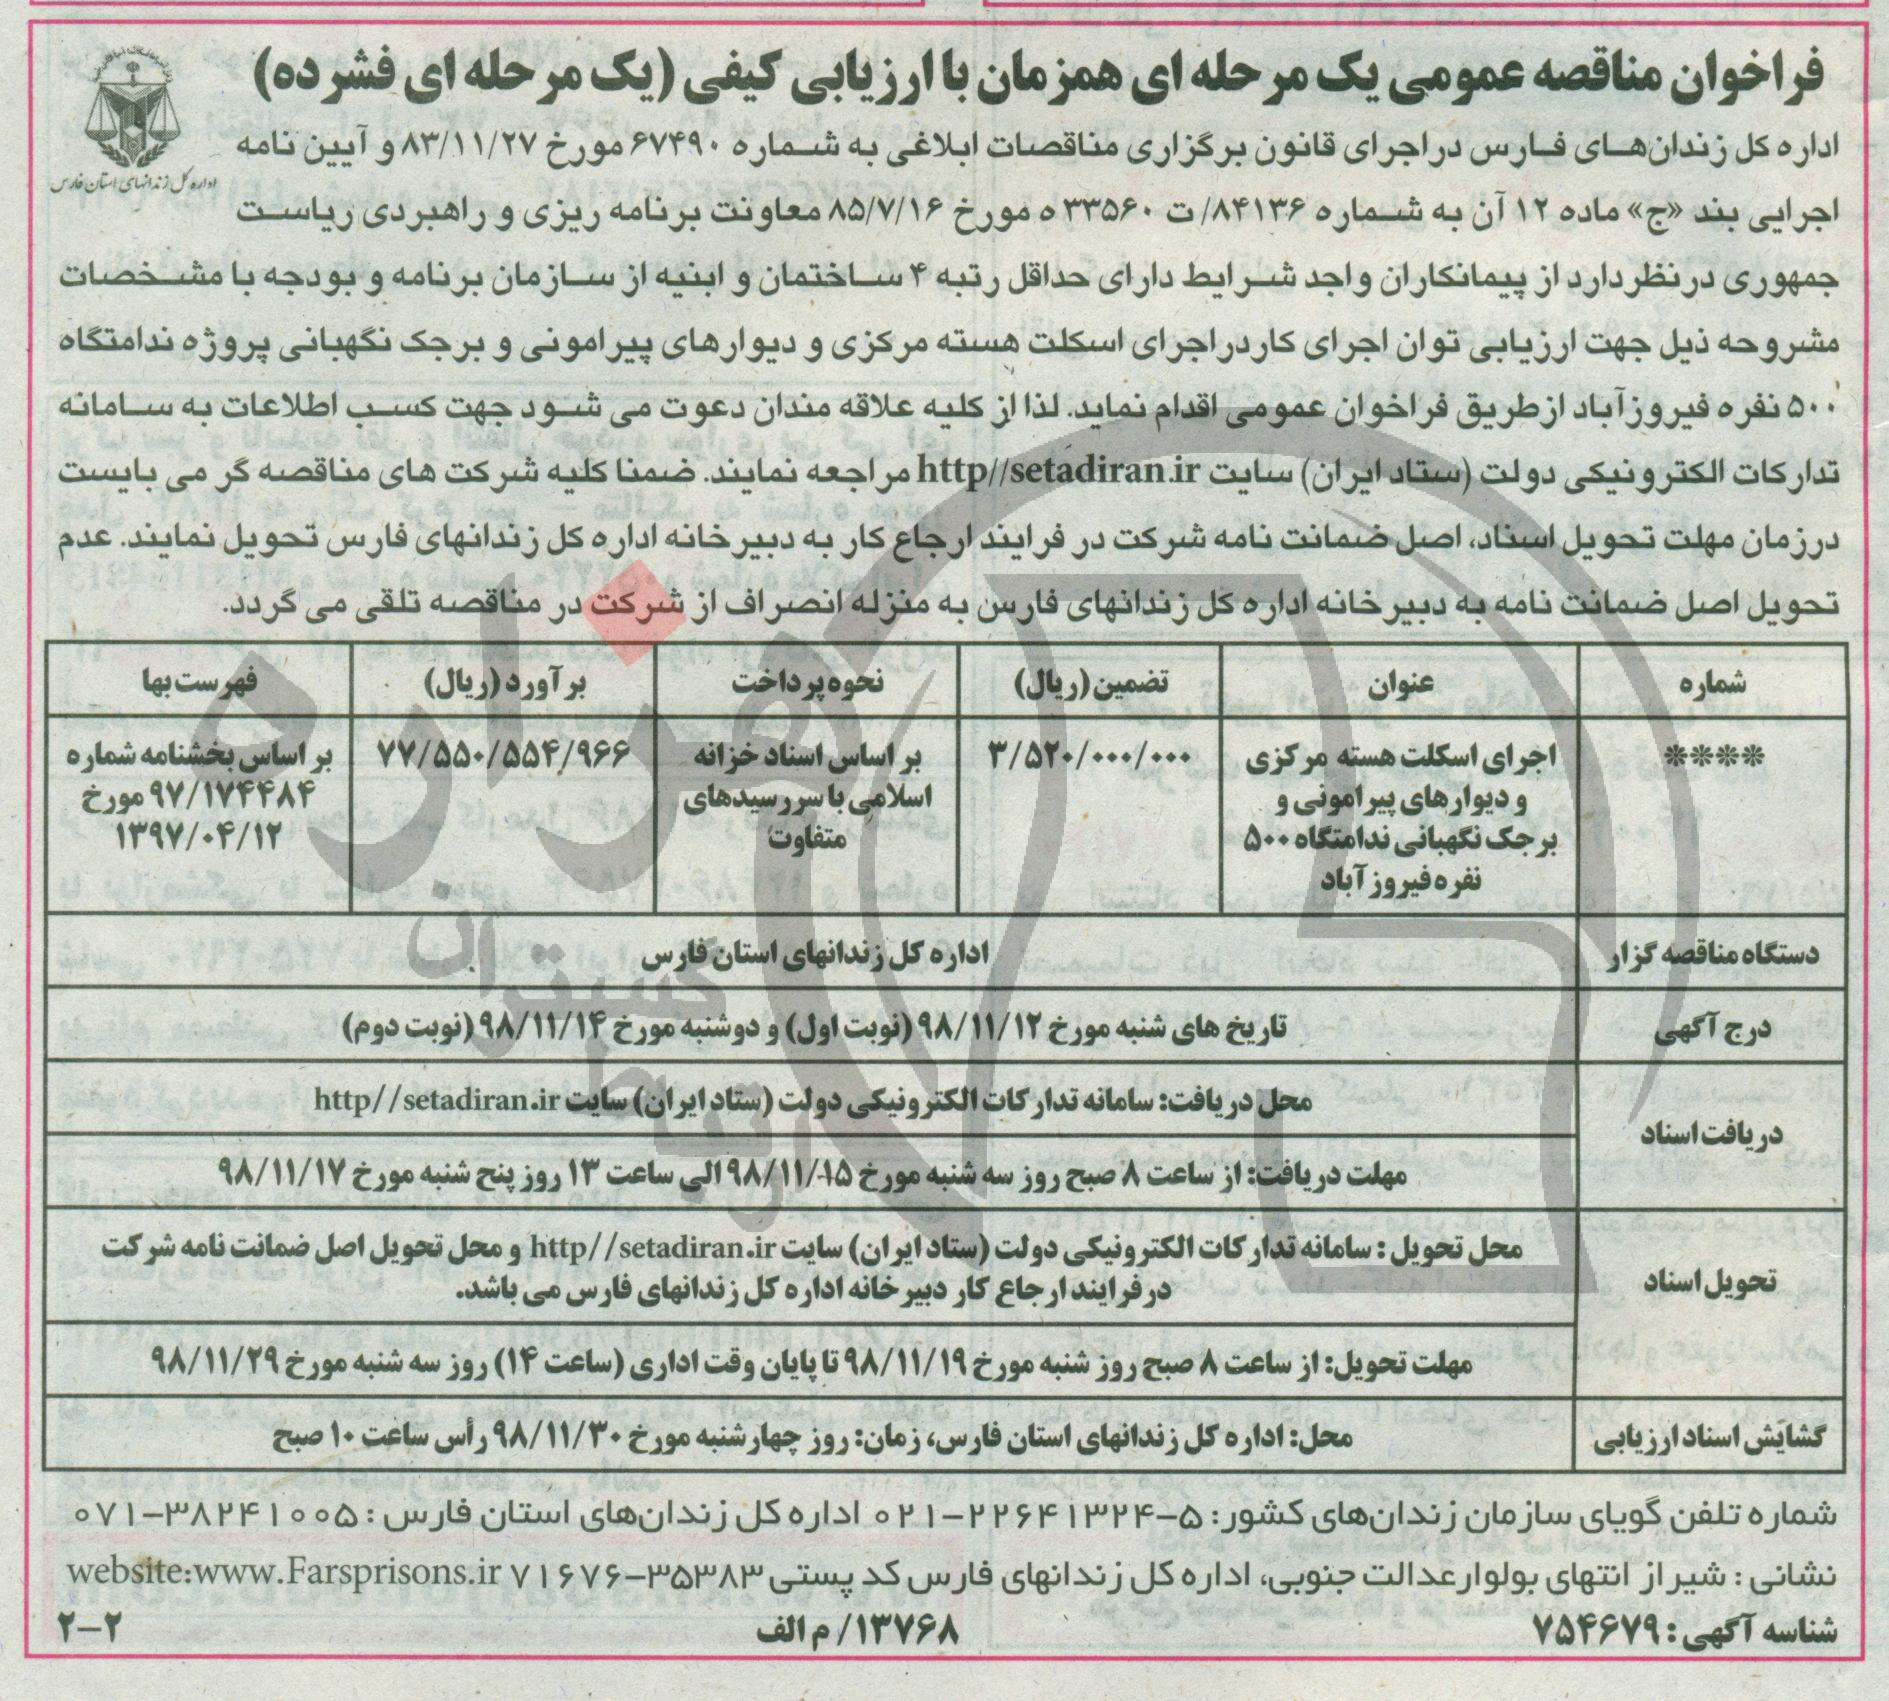 فراخوان مناقصه عمومی یک مرحله ای همزمان با ارزیابی کیفی (یک مرحله ای فشرده)
اداره کل زندانهای استان فارس
اداره کل زندان‌هـای فـارس در اجرای قانون برگزاری مناقصات ابلاغی به شـماره ۶۷۴۹۰ مورخ ۸۳/۱۱/۲۷ و آیین نامه
اجرایی بند «ج» ماده ۱۲ آن به شـماره ۸۴۱۳۶/ ت ۳۳۵۶۰ ه مورخ ۸۵/۷/۱۶ معاونت برنامه ریزی و راهبردی ریاسـت
جمهوری در نظر دارد از پیمانکاران واجد شـرایط دارای حداقل رتبه ۴ سـاختمان و ابنیه از سـازمان برنامه و بودجه با مشـخصات
مشروحه ذیل جهت ارزیابی توان اجرای کار در اجرای اسکلت هسته مرکزی و دیوارهای پیرامونی و برجک نگهبانی پروژه ندامتگاه
۵۰۰ نفره فیروزآباد از طریق فراخوان عمومی اقدام نماید. لذا از کلیه علاقه مندان دعوت می شـود جهت کسـب اطلاعات به سـامانه
تدارکات الکترونیکی دولت (ستاد ایران) سایت http//setadiran.ir مراجعه نمایند. ضمنا کلیه شرکت های مناقصه گر می بایست
در زمان مهلت تحویل اسناد، اصل ضمانت نامه شرکت در فرایند ارجاع کار به دبیرخانه اداره کل زندانهای فارس تحویل نمایند. عدم
تحویل اصل ضمانت نامه به دبیرخانه اداره کل زندانهای فارس به منزله انصراف از شرکت در مناقصه تلقی می گردد.
شماره عنوان تضمین (ریال) نحوه پرداخت برآورد (ریال) فهرست بها
**** اجرای اسکلت هسته مرکزی ۳/۵۲۰/۰۰۰/۰۰۰ بر اساس اسناد خزانه ۷۷/۵۵۰/۵۵۴/۹۶۶ بر اساس بخشنامه شماره
و دیوارهای پیرامونی و اسلامی با سررسیدهای ۹۷/۱۷۴۴۸۴ مورخ
برجک نگهبانی ندامتگاه ۵۰۰ متفاوت ۱۳۹۷/۰۴/۱۲
نفره فیروزآباد
دستگاه مناقصه گزار اداره کل زندانهای استان فارس
درج آگهی تاریخ های شنبه مورخ ۹۸/۱۱/۱۲ (نوبت اول) و دوشنبه مورخ ۹۸/۱۱/۱۴ (نوبت دوم)
دریافت اسناد محل دریافت: سامانه تدارکات الکترونیکی دولت (ستاد ایران) سایت http//setadiran.ir
مهلت دریافت: از ساعت ۸ صبح روز سه شنبه مورخ ۹۸/۱۱/۱۵ الی ساعت ۱۳ روز پنج شنبه مورخ ۹۸/۱۱/۱۷
تحویل اسناد محل تحویل: سامانه تدارکات الکترونیکی دولت (ستاد ایران) سایت http//setadiran.ir و محل تحویل اصل ضمانت نامه شرکت
در فرایند ارجاع کار دبیرخانه اداره کل زندانهای فارس می باشد.
مهلت تحویل: از ساعت ۸ صبح روز شنبه مورخ ۹۸/۱۱/۱۹ تا پایان وقت اداری (ساعت ۱۴) روز سه شنبه مورخ ۹۸/۱۱/۲۹
گشایش اسناد ارزیابی محل: اداره کل زندانهای استان فارس، زمان: روز چهارشنبه مورخ ۹۸/۱۱/۳۰ رأس ساعت ۱۰ صبح
شماره تلفن گویای سازمان زندان‌های کشور: ۵-۲۲۶۴۱۳۲۴-۰۲۱ اداره کل زندان‌های استان فارس: ۳۸۲۴۱۰۰۵-۰۷۱
نشانی: شیراز انتهای بولوار عدالت جنوبی، اداره کل زندانهای فارس کد پستی ۳۵۳۸۳-۷۱۶۷۶ website:www.Farsprisons.ir
شناسه آگهی: ۷۵۴۶۷۹ ۱۳۷۶۸/ م الف ۲-۲
هزاره